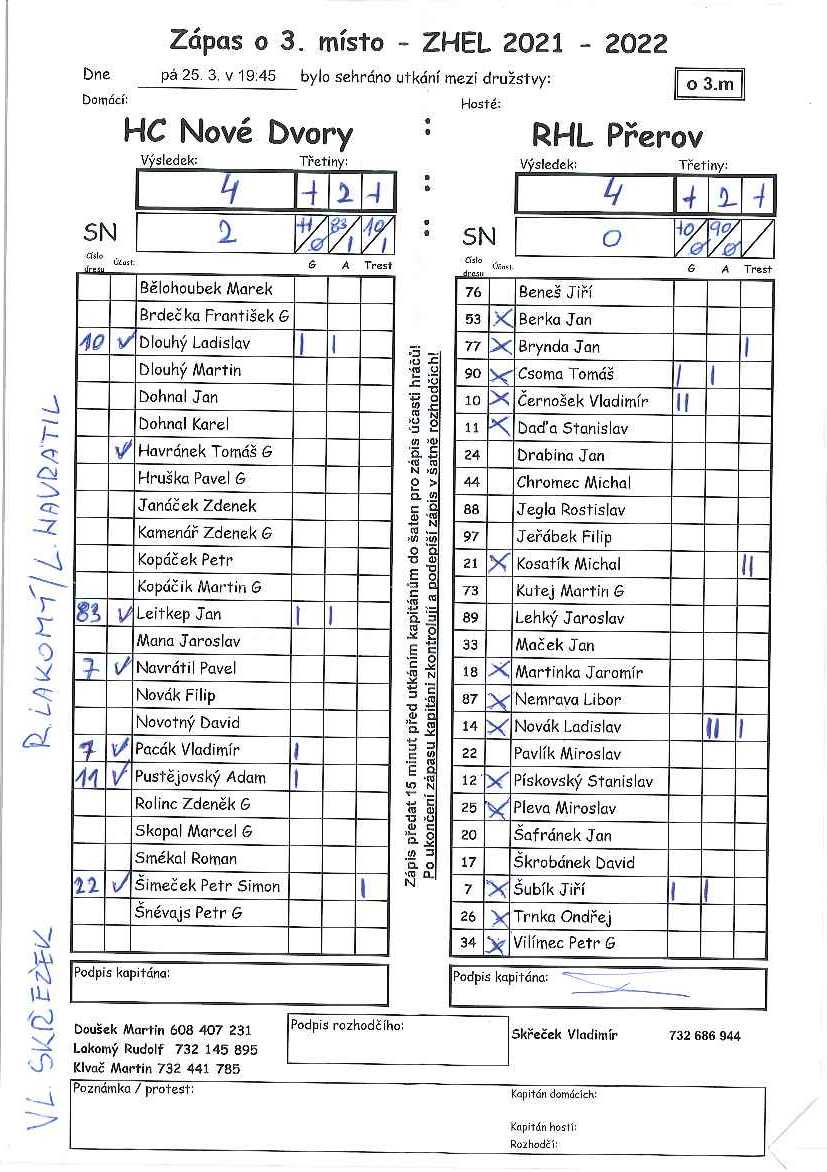 Zápas o 3. místo - ZHEL 2021 - 2022
Dne pá 25. 3. v 19:45 bylo sehráno utkání mezi družstvy:
o 3.m
Domácí: Hosté:
HC Nové Dvory : RHL Přerov
Výsledek: Třetiny: Výsledek: Třetiny:
4 1 2 1 : 4 1 2 1
SN 2 11/0 83/1 10/1 : SN 0 10/0 90/0 /
číslo dresu Účast: G A Trest číslo dresu Účast: G A Trest
Bělohoubek Marek
Brdečka František G
10 ✓ Dlouhý Ladislav | |
Dlouhý Martin
Dohnal Jan
Dohnal Karel
✓ Havránek Tomáš G
Hruška Pavel G
Janáček Zdenek
Kamenář Zdenek G
Kopáček Petr
Kopáčik Martin G
83 ✓ Leitkep Jan | |
Mana Jaroslav
7 ✓ Navrátil Pavel
Novák Filip
Novotný David
7 ✓ Pacák Vladimír |
11 ✓ Pustějovský Adam |
Rolinc Zdeněk G
Skopal Marcel G
Smékal Roman
22 ✓ Šimeček Petr Simon |
Šnévajs Petr G
Zápis předat 15 minut před utkáním kapitánům do šaten pro zápis účasti hráčů!
Po ukončení zápasu kapitáni zkontrolují a podepíší zápis v šatně rozhodčích!
76 Beneš Jiří
53 X Berka Jan
77 X Brynda Jan |
90 X Csoma Tomáš | |
10 X Černošek Vladimír ||
11 X Daďa Stanislav
24 Drabina Jan
44 Chromec Michal
88 Jegla Rostislav
97 Jeřábek Filip
21 X Kosatík Michal ||
73 Kutej Martin G
89 Lehký Jaroslav
33 Maček Jan
18 X Martinka Jaromír
87 X Nemrava Libor
14 X Novák Ladislav || |
22 Pavlík Miroslav
12 X Pískovský Stanislav
25 X Pleva Miroslav
20 Šafránek Jan
17 Škrobánek David
7 X Šubík Jiří | |
26 X Trnka Ondřej
34 X Vilímec Petr G
R. LAKOMÝ / L. NAVRÁTIL
VL. SKŘEČEK
Podpis kapitána: Podpis kapitána:
Doušek Martin 608 407 231
Lakomý Rudolf 732 145 895
Klvač Martin 732 441 785
Podpis rozhodčího:
Skřeček Vladimír 732 686 944
Poznámka / protest:
Kapitán domácích:
Kapitán hostí:
Rozhodčí: